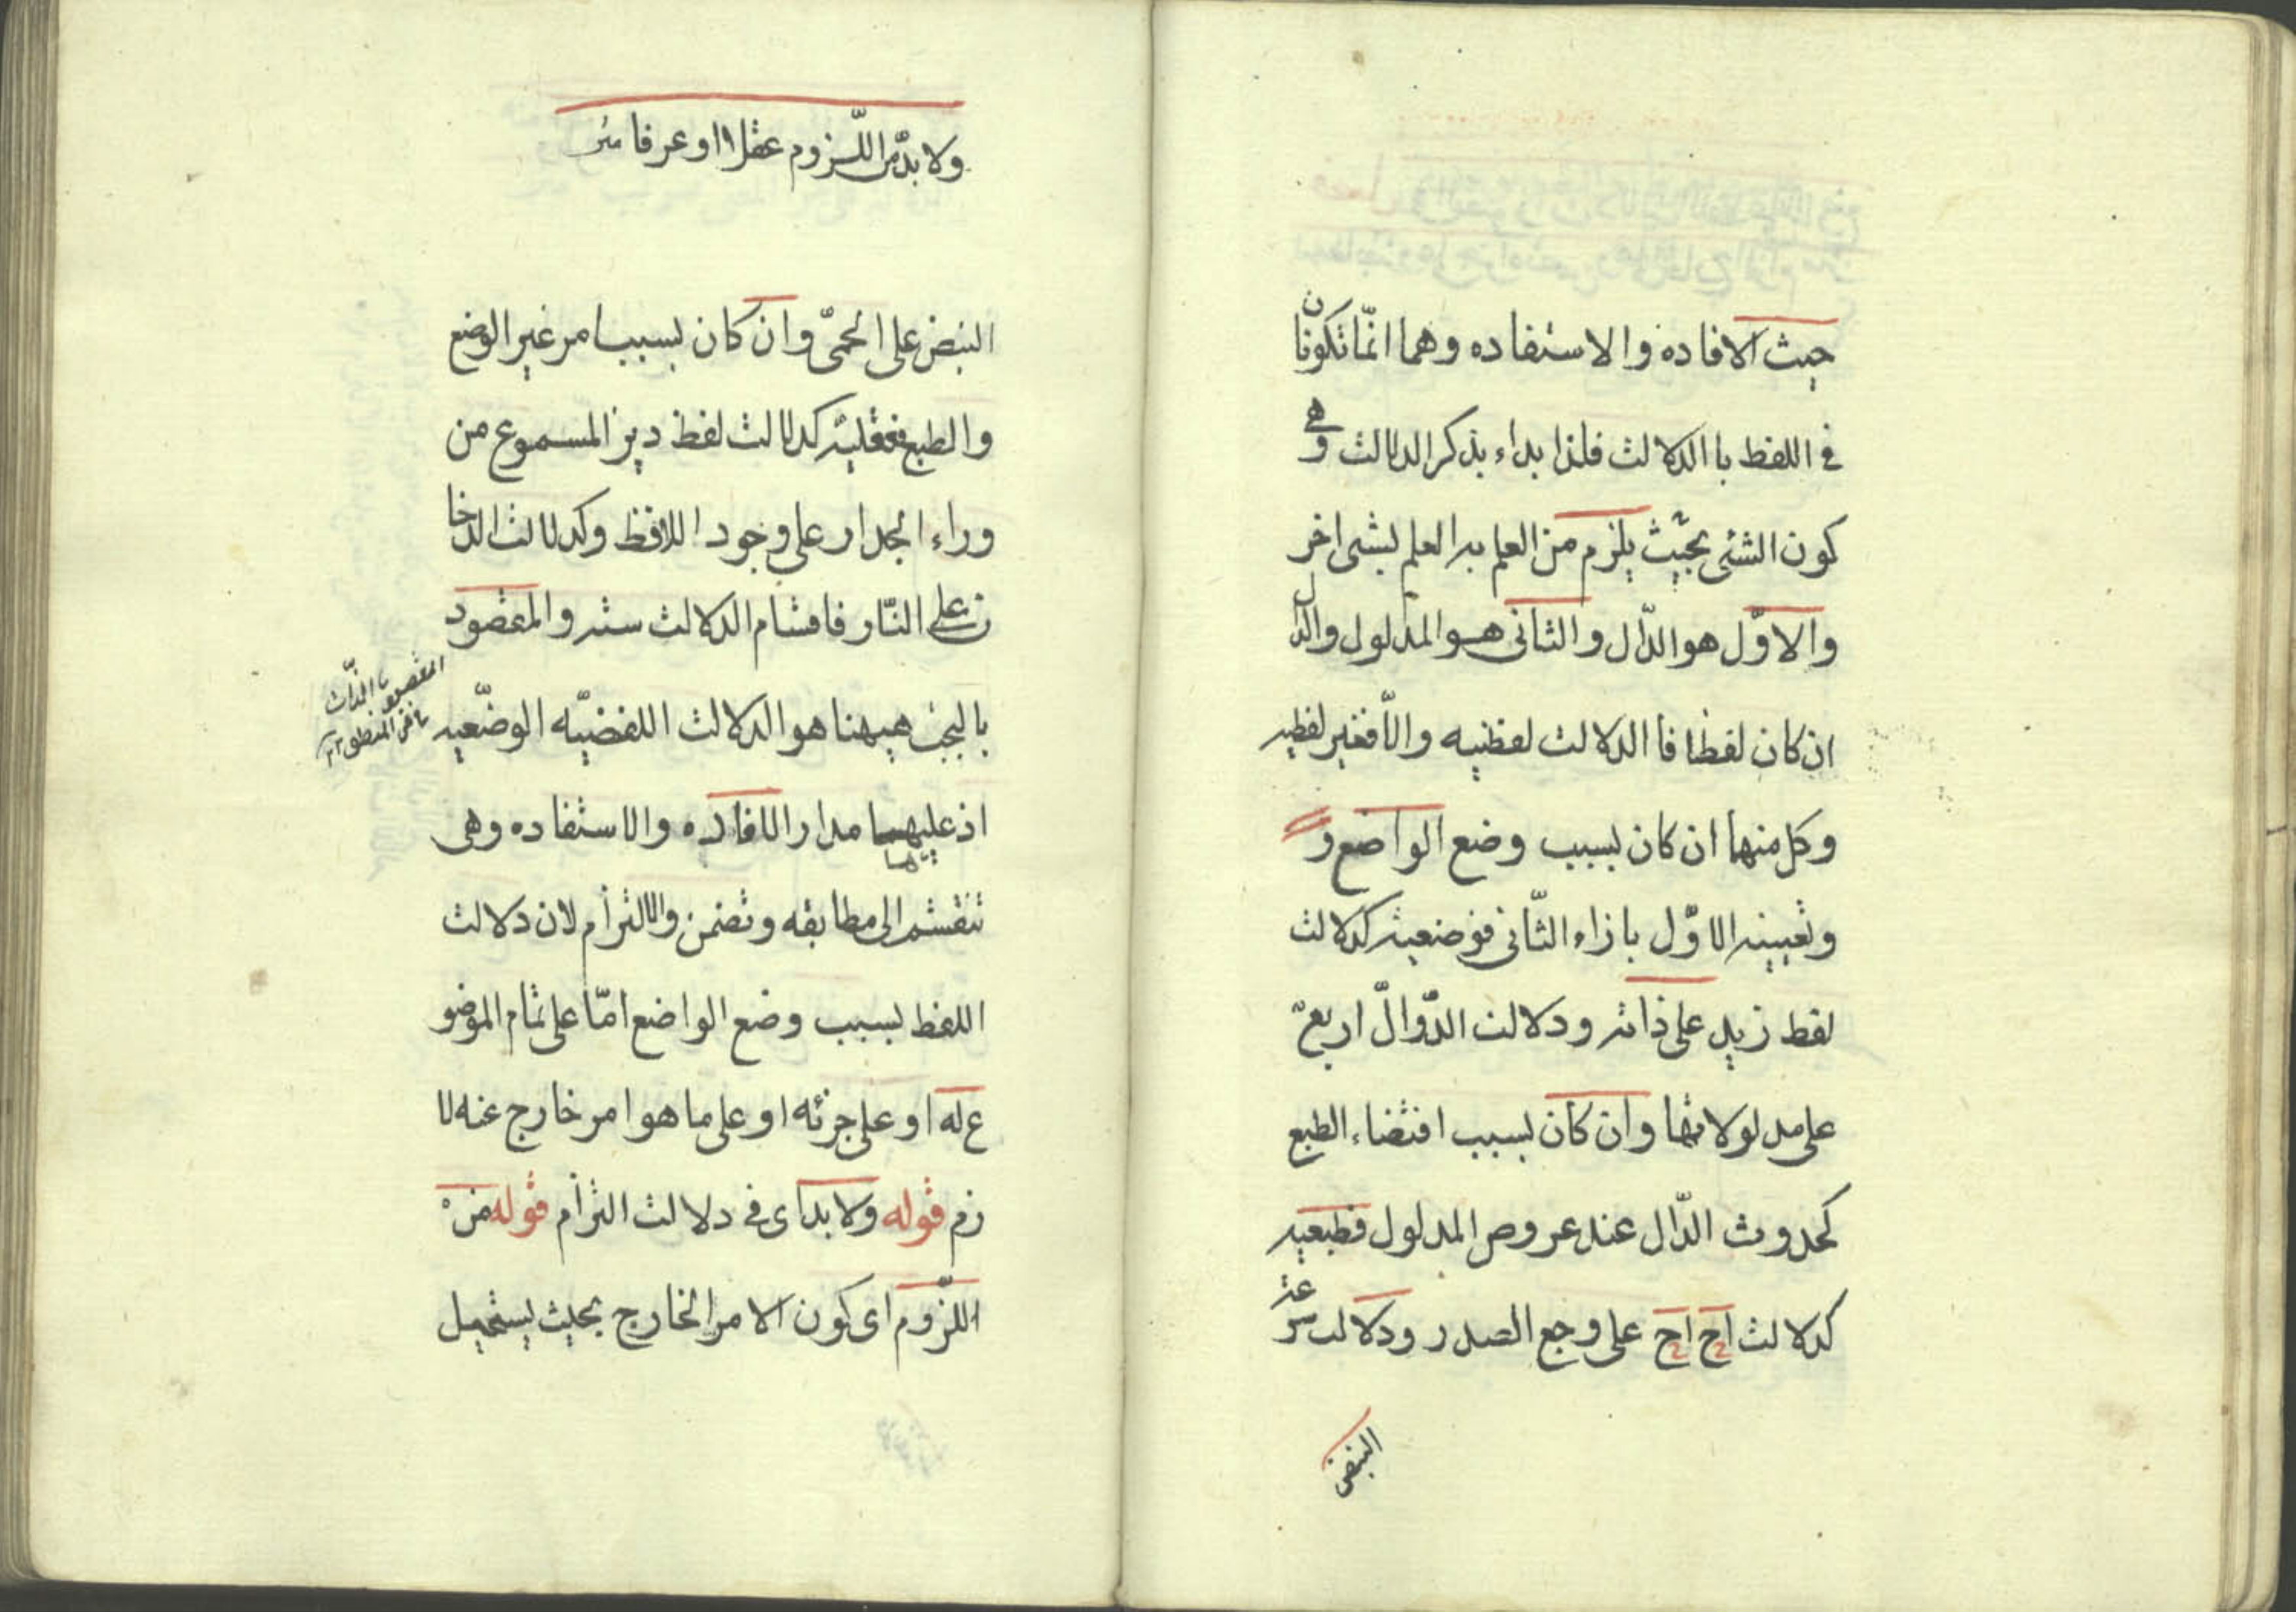 حيث الافاده والاستفاده وهما انّما تكونان
في اللفظ با الدلالت فلذا بداء بذكر الدلالت وهي
كون الشئى بحيث يلزم من العلم به العلم بشى اخر
والاوّل هو الدّال والثانى هو المدلول والدّال
ان كان لفظا فا الدلالت لفظيه والّا فغير لفظيه
وكل منهما ان كان بسبب وضع الواضع و
وتعيينه الاوّل بازاء الثّانى فوضعيته كدلالت
لفظ زيد على ذاته ودلالت الدّوالّ اربعّ
على مدلولاتها وان كان بسبب اقتضاء الطبع
كحدوث الدّال عند عروص المدلول فطبعيه
كدلالت اح اح على وجع الصدر ودلالت سرعته
النبض
ولا بدّ من اللّزوم عقلا او عرفا
النبض على الحمىّ وان كان بسبب امر غير الوضع
والطبع فعقليته كدلالت لفظ ديز المسموع من
وراء الجدار على وجود اللافظ وكدلالت الدخا
ن على النّار فاقسام الدلالت سته والمقصود
بالبحث هيهنا هو الدلالت اللفضيّه الوضّعيه
المقصود با الذّات
في المنطق ١٢
اذ عليهما مدار الافاده والاستفاده وهى
تنقسم الى مطابقه وتضمن والالتزام لان دلالت
اللفظ بسبب وضع الواضع امّا على تمام الموضو
ع له او على جزئه او على ما هو امر خارج عنه لا
زم قوله ولا بد اى في دلالت التزام قوله من
اللّزوم اى كون الامر الخارج بحيث يستحيل